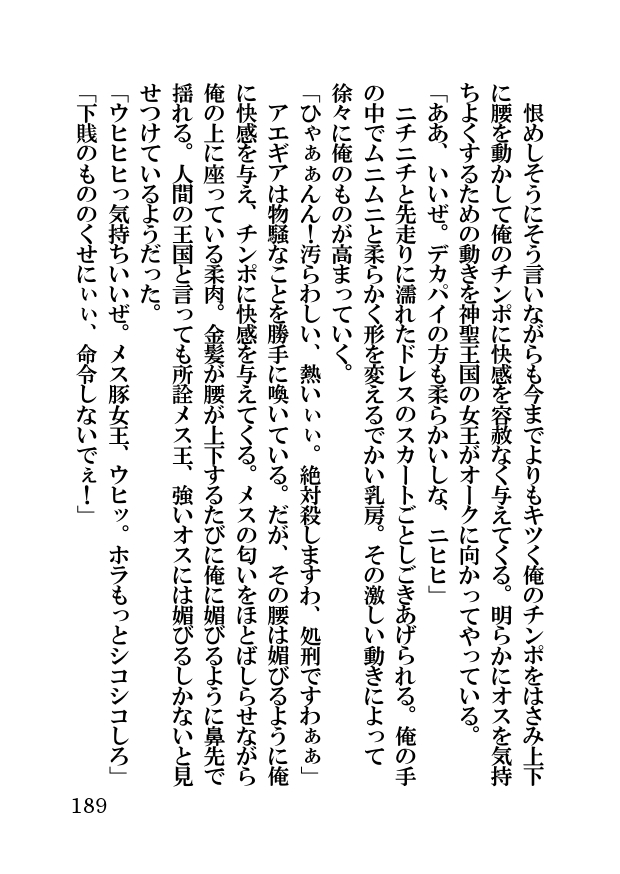 恨めしそうにそう言いながらも今までよりもキツく俺のチンポをはさみ上下
に腰を動かして俺のチンポに快感を容赦なく与えてくる。明らかにオスを気持
ちよくするための動きを神聖王国の女王がオークに向かってやっている。
「ああ、いいぜ。デカパイの方も柔らかいしな、ニヒヒ」
　ニチニチと先走りに濡れたドレスのスカートごとしごきあげられる。俺の手
の中でムニムニと柔らかく形を変えるでかい乳房。その激しい動きによって
徐々に俺のものが高まっていく。
「ひゃぁぁんん！汚らわしい、熱いぃぃ。絶対殺しますわ、処刑ですわぁぁ」
　アエギアは物騒なことを勝手に喚いている。だが、その腰は媚びるように俺
に快感を与え、チンポに快感を与えてくる。メスの匂いをほとばしらせながら
俺の上に座っている柔肉。金髪が腰が上下するたびに俺に媚びるように鼻先で
揺れる。人間の王国と言っても所詮メス王、強いオスには媚びるしかないと見
せつけているようだった。
「ウヒヒヒっ気持ちいいぜ。メス豚女王、ウヒッ。ホラもっとシコシコしろ」
「下賎のもののくせにぃぃ、命令しないでぇ！」
189